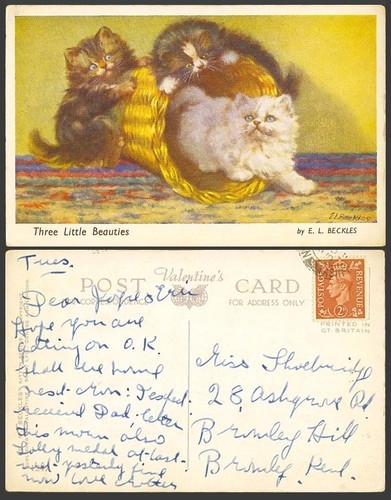 E.L. Beckles
Three Little Beauties
by E. L. BECKLES
Tues.
POST
Valentine's
CARD
FOR ADDRESS ONLY
POSTAGE
REVENUE
2D
PRINTED IN
GT. BRITAIN
Dear
Hope you are
getting on O.K.
shall be home
next Mon: I expect
received Dad letter
this morn also
medal at last
wet yesterday fine
now love
Miss Shoebridge
28, Ashgrove Rd
Bromley Hill
Bromley, Kent.